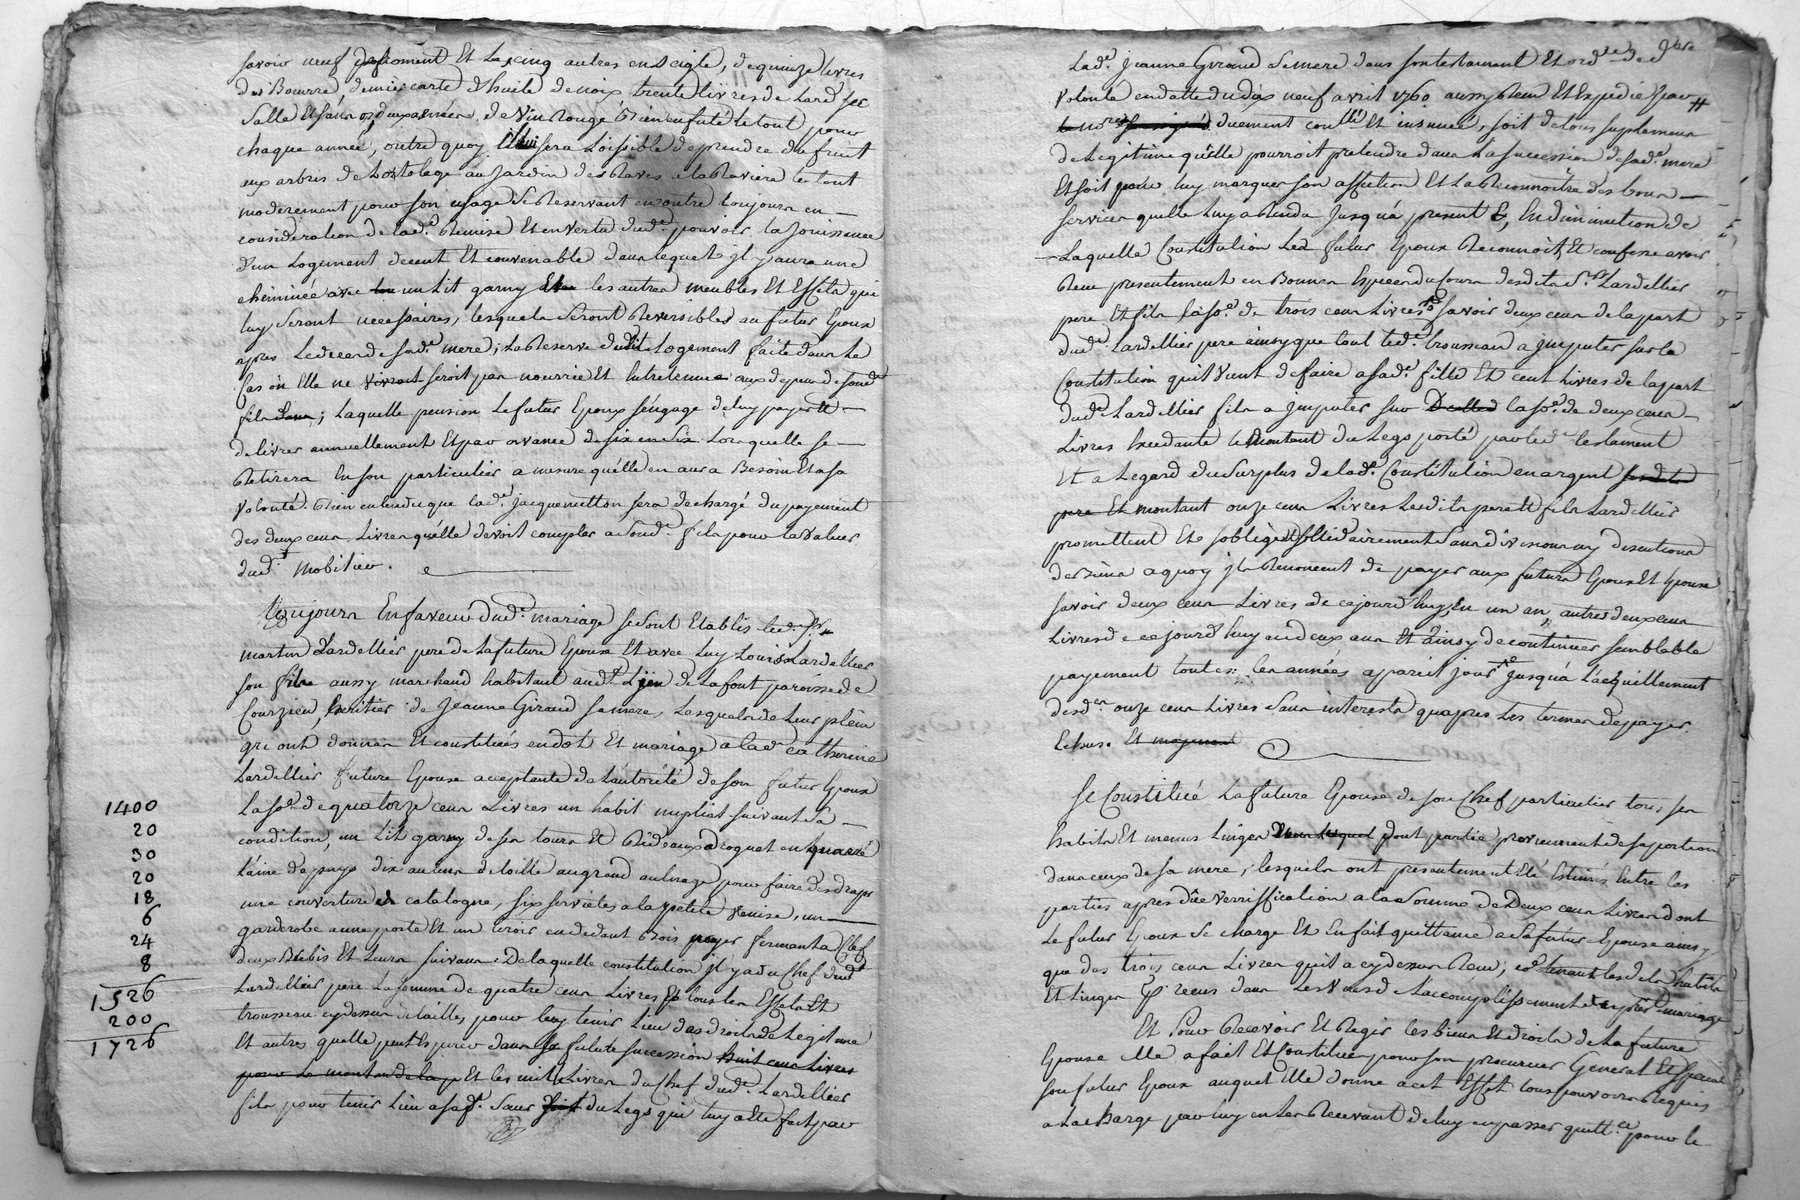 savoir neuf froment Et Les cinq autres en seigle, de quinze livres
de Beurre demie carte d'huile de noix trente livres de Lard sec
Salle Et sain deux asnées de vin Rouge Bien enfuté le tout pour
chaque année, outre quoy il luy sera Loissible de prendre du fruit
aux arbres de hortolage au Jardin des Raves a la Raviere le tout
moderement pour son usage Se Reservant encontre toujours en
consideration de lad.e Remise Et en vertu dud.t pouvoir la Jouissance
d'un Logement decent Et convenable dans lequel jl y aura une
cheminée avec un Lit garny Et les autres meubles Et Effets qui
luy seront necessaires, lesquels seront Reversibles au futur Epoux
apres Le deced de sad.e mere; La Reserve dudit Logement faite dans Le
Cas où Elle ne vivroit seroit pas nourrie Et Entretenue aux depens de sond.t
fils ; Laquelle pension Le futur Epoux s'engage de luy payer Et
delivrer annuellement Et par avance de six en six Lorsquelle se
Retirera En son particulier a mesure qu'elle en aura Besoin Et a sa
volonté. Bien entendu que lad.e Jacquemetton sera dechargé du payement
des deux cens Livres qu'elle devoit compter a sond.t fils pour la valeur
dud.t Mobilier.
Toujours En faveur dud.t mariage se sont Etablis led.t S.r
martin Lardellier pere de La future Epouse Et avec Luy Louis Lardellier
son fils aussy marchand habitant aud.t Lieu de La font paroisse de
Courzieu, heritier de Jeanne Giraud sa mere, Lesquels de Leur plein
gré ont donnés Et constitués en dot Et mariage a lad.e catherine
Lardellier future Epouse acceptante de L'autorité de son futur Epoux
La so.e de quatorze cens Livres un habit nuptial suivant sa
condition, un Lit garny de ses tours Et Rideaux droguet en quarré
Laine de pays dix aulnes de toille au grand aulnage pour faire des draps
une couverture de catalogne, six serviètes a la petite venise, un
garderobe a une porte Et un tiroir en dedant Bois noyer fermant a Clef
deux Brebis Et Leurs suivans. De laquelle constitution jl y a du Chef dud.t
Lardellier pere La somme de quatre cens Livres Et tous les Effets Et
trousseau cydessus détaillés pour luy tenir Lieu des droits de Legitime
Et autres quelle peut Esperer dans sa future succession huit cens Livres
pour Le montan de la Et les mille Livres du Chef dud.t Lardellier
fils pour tenir Lieu a sad.e Sœur soit du Legs qui luy a Eté fait par
1400
20
30
20
18
6
24
8
1526
200
1726
Lad.e Jeanne Giraud sa mere dans son testament Et ord.ce de d.re
volonté en datte du dix neuf avril 1760 aussy Reçu Et Expedié par
no.re soussigné duement con.llé Et insinué, soit de tous suplemens
de Legitime qu'elle pourroit pretendre dans La succession de sad.e mere
Et soit pour luy marquer son affection Et La Reconnoitre des bons
services quelle luy a Rendu jusqu'a present Et, En diminution de
Laquelle Constitution Led. futur Epoux Reconnoit Et confesse avoir
Reçu presentement en Bonnes Especes du Cours desdits S.rs Lardellier
pere Et fils la so.e de trois cens Livres, savoir deux cens de la part
dud.t Lardellier pere ainsy que tout led.t trousseau a jmputer sur la
Constitution qu'il vient de faire a sad.e fille Et cent Livres de la part
dud.t Lardellier fils a jmputer sur la so.e de deux cens
Livres Excedante le montant du Legs porté par led.t testament
Et a Legard du surplus de lad.e Constitution en argent
pere Et montant onze cens Livres Lesdits pere Et fils Lardellier
promettent Et s'obligent sollidairement sans division ny discution
de biens a quoy jls Renoncent de payer aux futurs Epoux Et Epouse
savoir deux cens Livres de cejourd'huy En un an, autres deux cens
Livres de ce jourd'huy en deux ans Et ainsy de continuer semblable
payement toutes les années a pareil jour jusqu'a l'acquittement
desd. onze cens Livres sans interets qu'apres Les termes de payer.
Echus.
Se Constitué La future Epouse de son Chef particulier tous ses
habits Et menus Linges dont partie proviennent de sa portion
dans ceux de sa mere, lesquels ont presentement Eté Estimés Entre les
parties apres dûe verriffication a la somme de Deux cens Livres dont
Le futur Epoux se charge Et En fait quittance a sa future Epouse ainsy
que des trois cens Livres qu'il a cydessus Reçu, lesd. habits
Et Linges reçus dans Les vües de L'accomplissement du present mariage
Et Pour Recevoir Et Regir les biens Et droits de La future
Epouse Elle a fait Et Constitué pour son procureur General Et special
son futur Epoux auquel Elle donne a cet Effet tous pouvoirs Requis
a La charge par luy en Les Recevant de luy en passer quitt.ce pour le